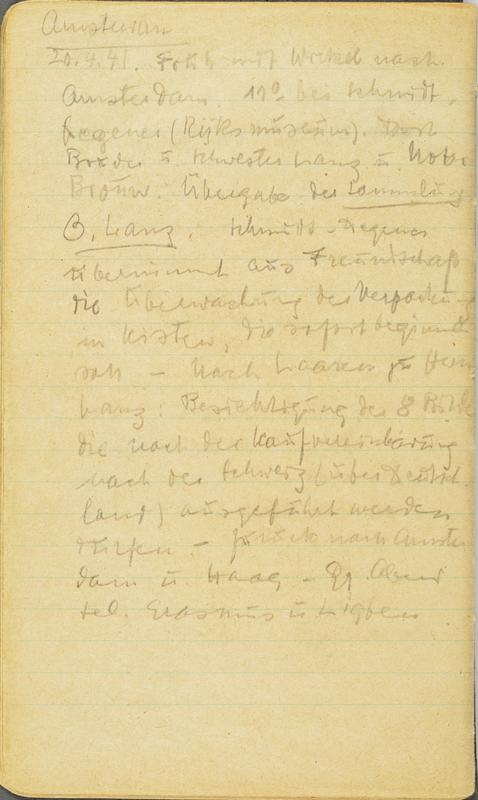 Amsterdam
20.4.41. Fahrt mit Wickel nach
Amsterdam. 11⁰ bei Schmidt-
Degener (Rijksmuseum). Dort
Bruder u. Schwester Lanz u. Notar
Brouw. Übergabe der Sammlung
O. Lanz. Schmidt-Degener
übernimmt aus Freundschaft
die Überwachung der Verpackung
in Kisten, die sofort beginnen
soll – Nach Laaren zu Herrn
Lanz: Besichtigung der 8 Bilder
die nach der Kaufvereinbarung
nach der Schweiz (über Deutsch-
land) ausgeführt werden
dürfen. – Zurück nach Amster-
dam u. Haag – Abend
tel. Erasmus u.